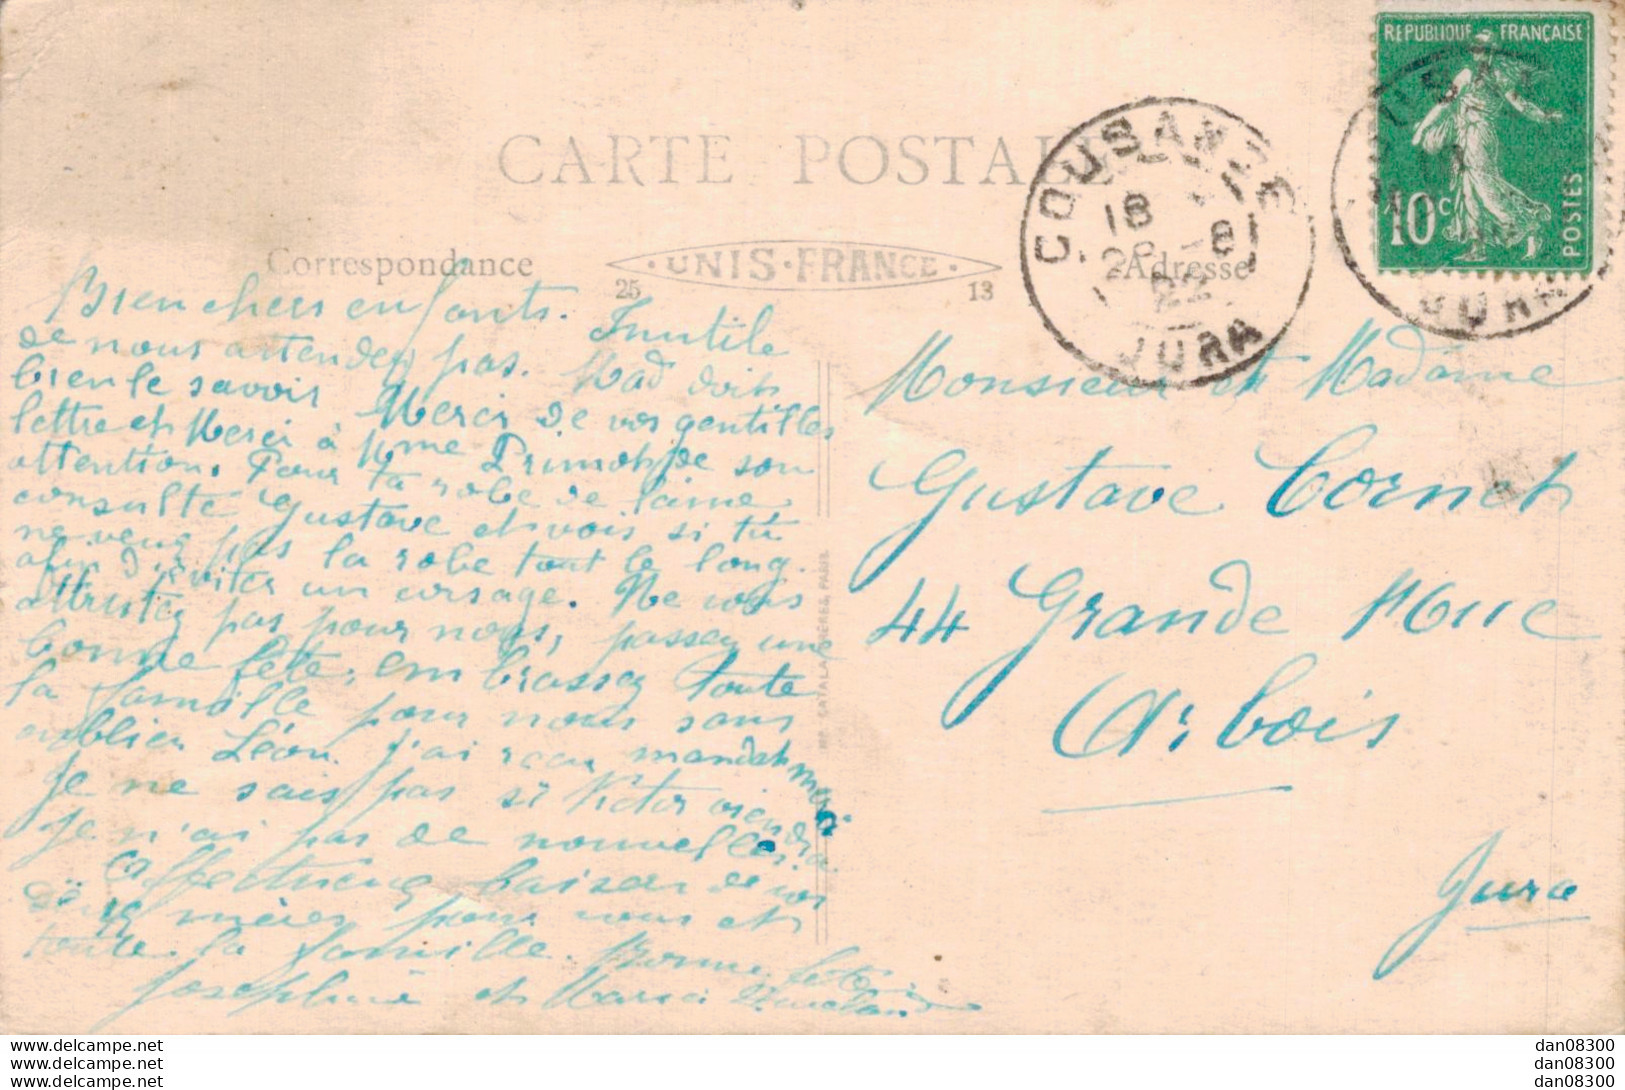 REPUBLIQUE FRANÇAISE
10c
POSTES
CARTE POSTALE
COUSANCE
18
28 -8
22
JURA
JURA
Correspondance
UNIS-FRANCE
25
13
Adresse
Bien chers enfants. Inutile
de nous attendez pas. Mad doit
bien le savoir Merci de vos gentilles
lettre et Merci à Mme de son
attention. Pour ta robe de laine
consulte Gustave et vois si tu
ne veux pas la robe tout le long.
afin d'éviter un corsage. Ne vous
attristez pas pour nous, passez une
bonne fête, embrassez toute
la famille pour nous sans
oublier Léon. J'ai reçu mandat merci
Je ne sais pas si Victor viendra
Je n'ai pas de nouvelles.
Affectueux baisers de vos
deux mères pour vous et
toute la famille. Bonne fête
Josephine et Maria
Monsieur et Madame
Gustave Cornet
44 Grande Rue
Arbois
Jura
dan08300
dan08300
dan08300
dan08300
dan08300
dan08300